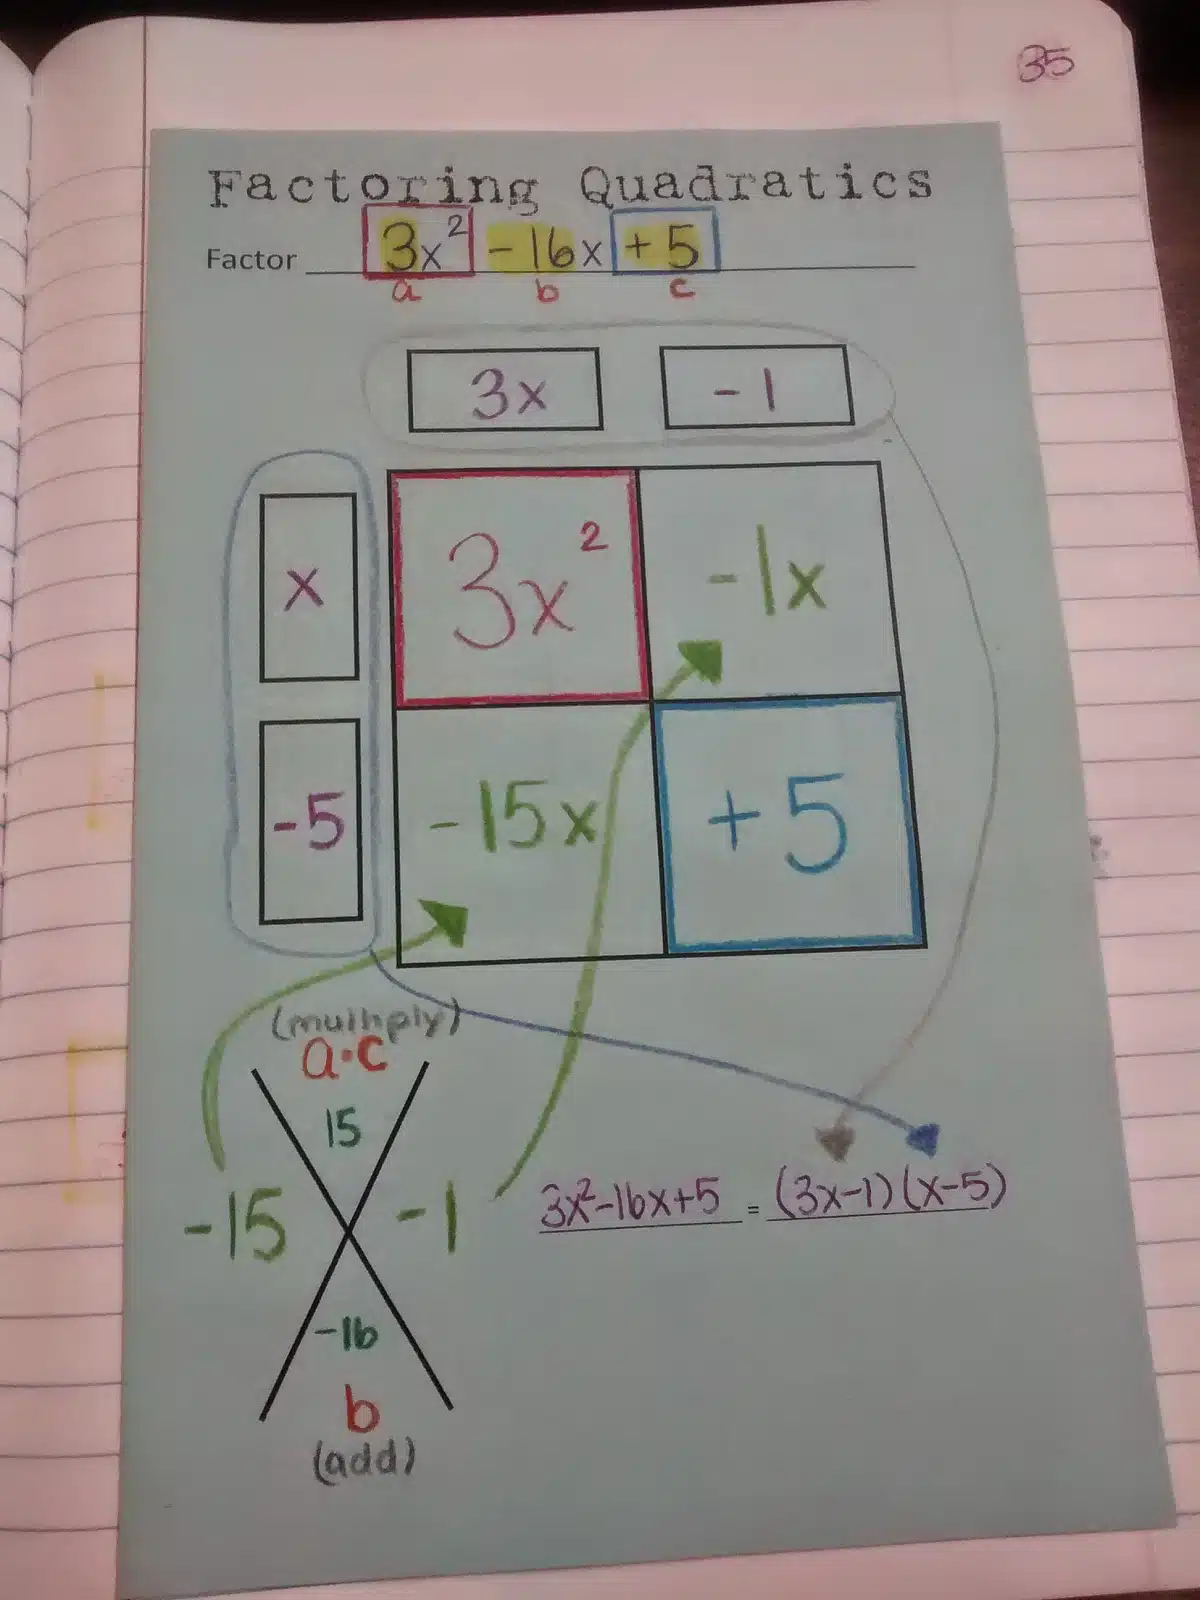 35
Factoring Quadratics
Factor 3x² - 16x + 5
a b c
3x - 1
x
3x² -1x
-5
-15x + 5
(multiply)
a·c
15
-15 -1
3x²-16x+5 = (3x-1)(x-5)
-16
b
(add)